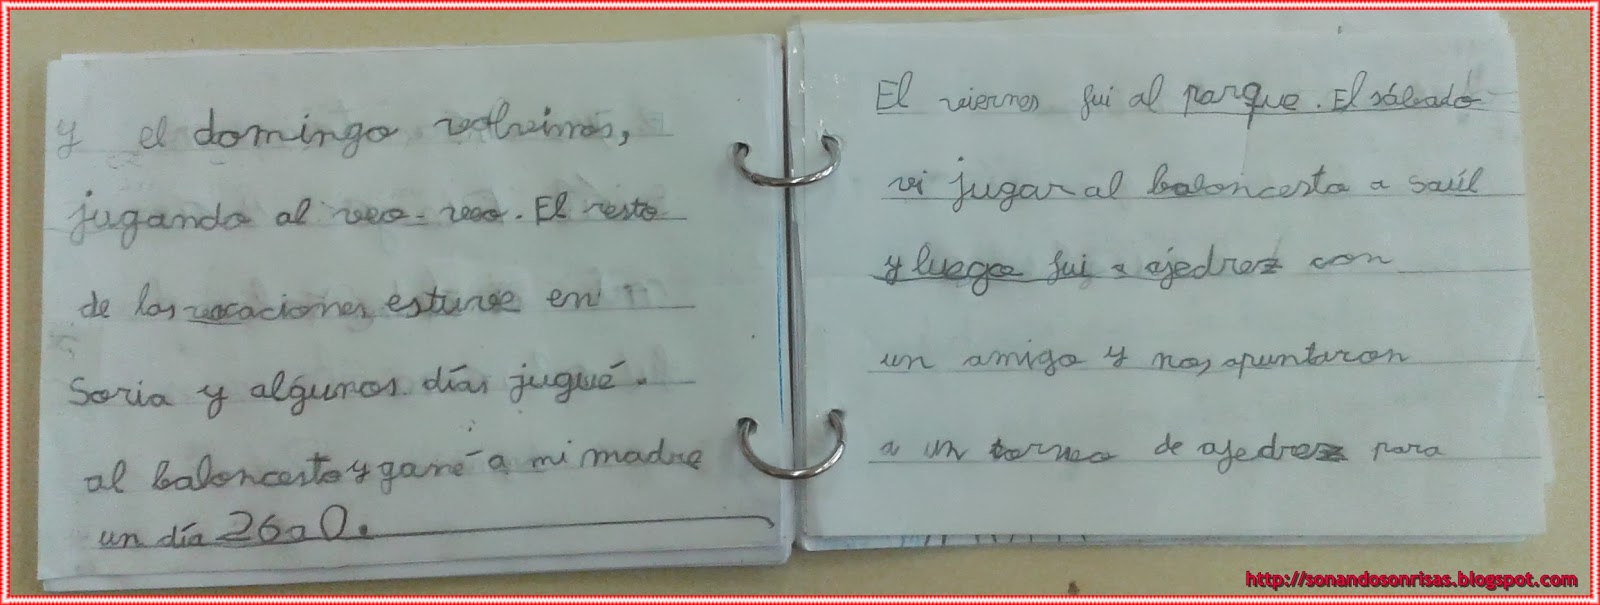 y el domingo volvimos,
jugando al veo-veo. El resto
de las vacaciones estuve en
Soria y algunos días jugué.
al baloncesto y gané a mi madre
un día 26 a 0.
El viernes fui al parque. El sábado
vi jugar al baloncesto a Saúl
y luego fui a ajedrez con
un amigo y nos apuntaron
a un torneo de ajedrez para
http://sonandosonrisas.blogspot.com